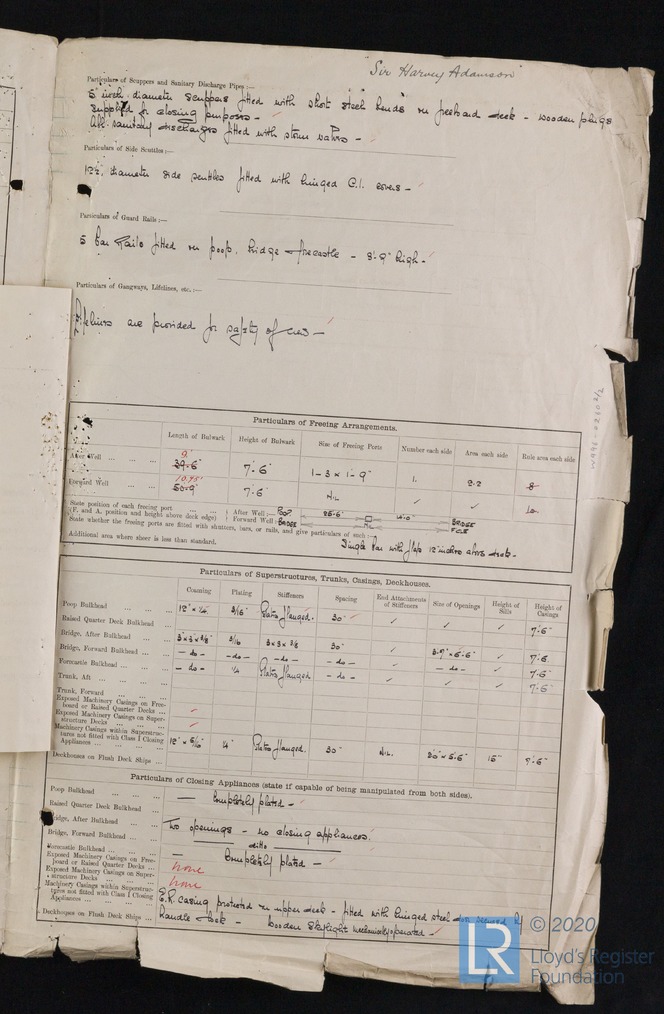 "Sir Harvey Adamson"
Particulars of Scuppers and Sanitary Discharge Pipes :—
5 inch diameter scuppers fitted with short steel bends on freeboard deck - wooden plugs
supplied for closing purposes -
All sanitary discharges fitted with storm valves -
Particulars of Side Scuttles :—
diameter side scuttles fitted with hinged C.I. covers -
Particulars of Guard Rails :—
3 bar Rails fitted on poop, bridge forecastle - 3'-9" high -
Particulars of Gangways, Lifelines, etc. :—
Lifelines are provided for safety of crew -
W996-0210 2/2
Particulars of Freeing Arrangements.
Length of Bulwark Height of Bulwark Size of Freeing Ports Number each side Area each side Rule area each side
After Well 39'-6" 9. 7'-6" 1-3 x 1-9" 1. 2.2 8
Forward Well 50-9" 10.95 7'-6" Nil
State position of each freeing port
(F. and A. position and height above deck edge)
After Well :— POOP 25-6" BRIDGE
Forward Well :— BRIDGE Nil FCLE
State whether the freeing ports are fitted with shutters, bars, or rails, and give particulars of such :—
Additional area where sheer is less than standard.
Single bar with flap 12 inches above deck -
Particulars of Superstructures, Trunks, Casings, Deckhouses.
Coaming Plating Stiffeners Spacing End Attachments of Stiffeners Size of Openings Height of Sills Height of Casings
Poop Bulkhead 12" x 1/4 3/16 Plates flanged. 30" 7'-6"
Raised Quarter Deck Bulkhead
Bridge, After Bulkhead 3 x 3 x 3/8 3/16 3 x 3 x 3/8 30" 7'-6
Bridge, Forward Bulkhead - do - - do - - do - - do - - do - 7'-6
Forecastle Bulkhead - do - 1/4 Plates flanged - do - 7'-6"
Trunk, Aft
Trunk, Forward
Exposed Machinery Casings on Freeboard or Raised Quarter Decks
Exposed Machinery Casings on Superstructure Decks
Machinery Casings within Superstructures not fitted with Class I Closing Appliances 12" x 5/16 1/4" Plates flanged. 30" Nil. 15"
Deckhouses on Flush Deck Ships
Particulars of Closing Appliances (state if capable of being manipulated from both sides).
Poop Bulkhead — Completely plated -
Raised Quarter Deck Bulkhead
Bridge, After Bulkhead Two openings - no closing appliances.
Bridge, Forward Bulkhead ditto
Forecastle Bulkhead — Completely plated —
Exposed Machinery Casings on Freeboard or Raised Quarter Decks none
Exposed Machinery Casings on Superstructure Decks none
Machinery Casings within Superstructures not fitted with Class I Closing Appliances E.R. casing protected on upper deck - fitted with hinged steel door by
handle - Wooden Skylight mechanically operated -
Deckhouses on Flush Deck Ships
LR
© 2020
Lloyd's Register
Foundation